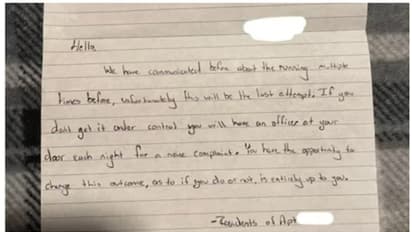 Hello,
We have communicated before about the running multiple
times before, unfortunately this will be the last attempt. If you
don't get it under control you will have an officer at your
door each night for a noise complaint. You have the opportunity to
change this outcome, as to if you do or not, is entirely up to you.
-Residents of Apt